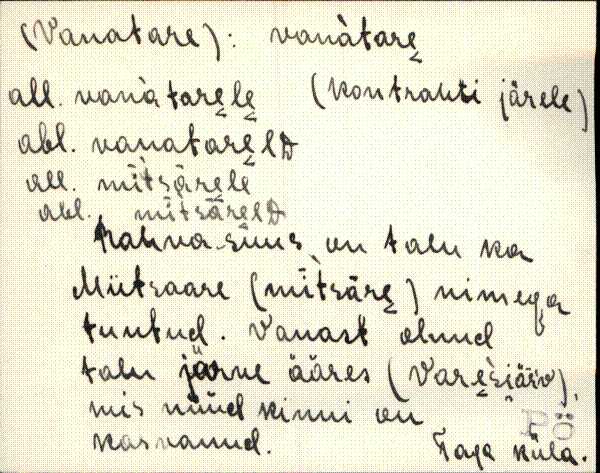 (Vanatare): vanàtarę
all. vanàtaręlę (kontrahti järele)
abl. vanataręlD
all. mìtsärelę
abl. mìtsärelD
Rahva suus on talu ka
Miitsaare (mìtsärę) nimega
tuntud. Vanast olnud
talu järve ääres (Varęsjärv),
mis nüüd kinni on
kasvanud.
Taga küla.
Pö